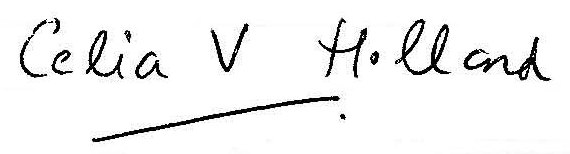 Celia V Holland